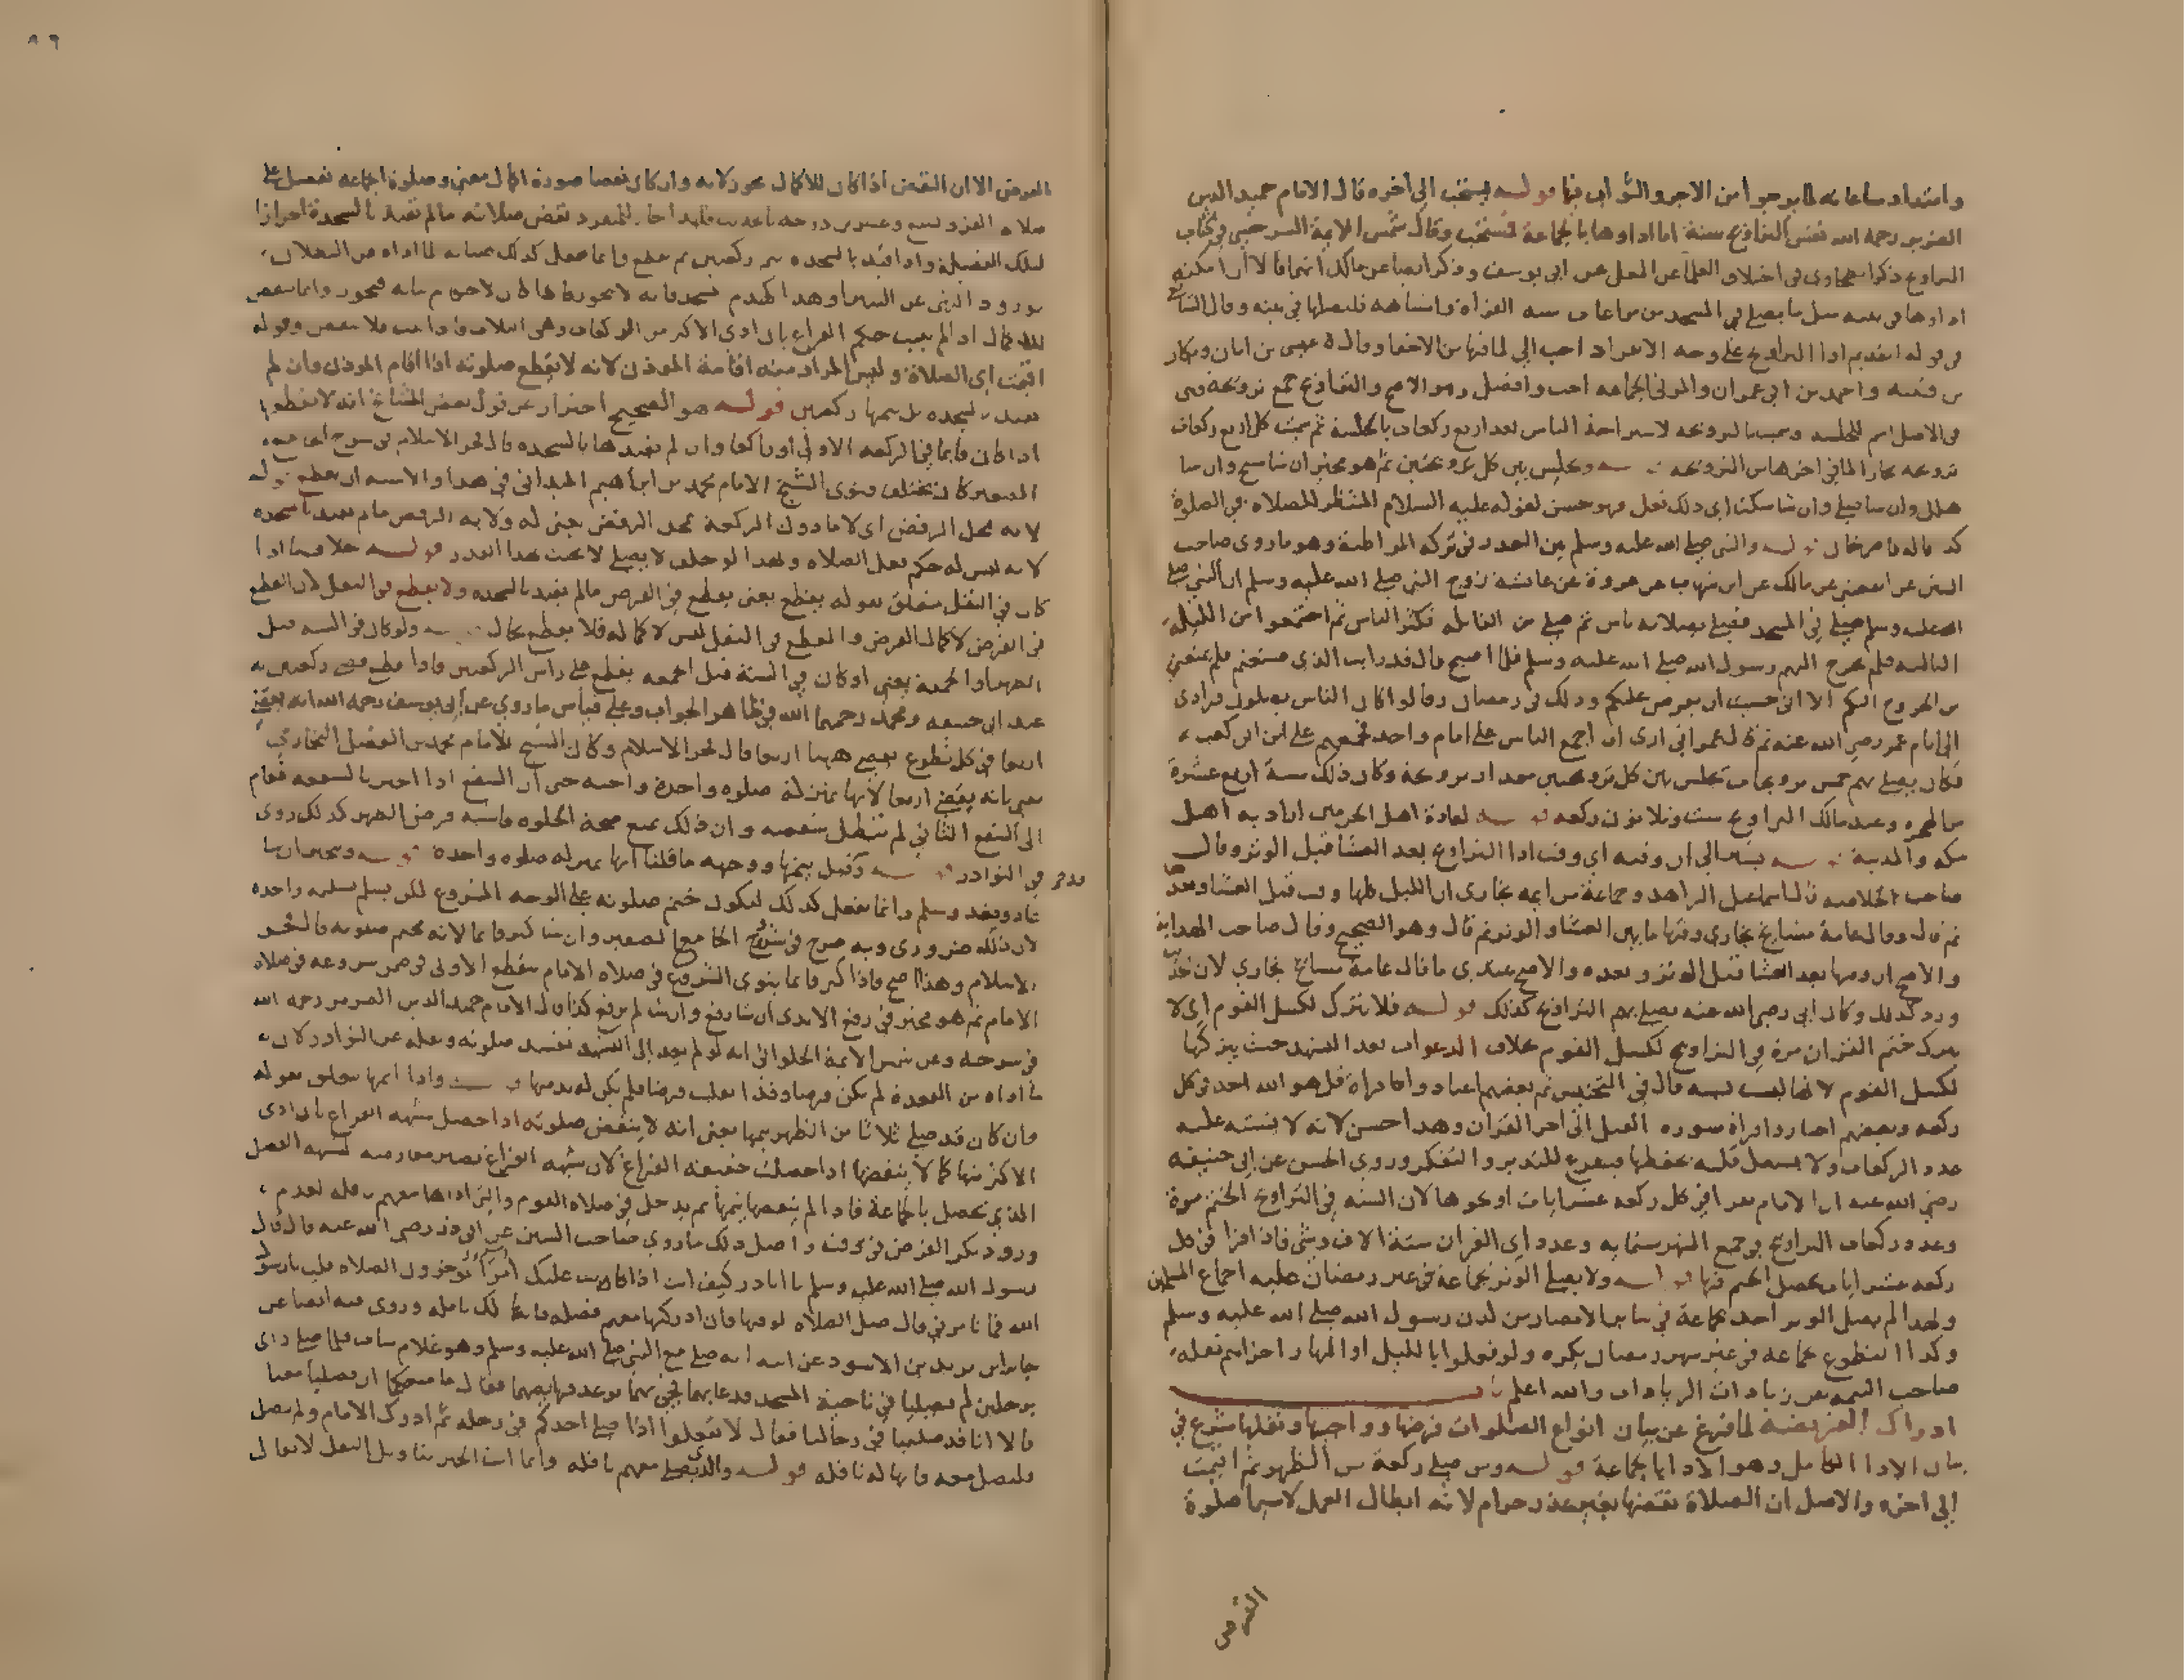 وامتداد ساعاته لما يوجبوا من الاجر والثواب فيها قوله يستحب الى اخره قال الامام حميد الدين
الضرير رحمه الله نفس التراويح سنة اما اداوها بالجماعة فمستحب وقال شمس الايمة السرخسي في كتاب
التراويح ذكر الطحاوي في اختلاف العلما عن المعلى عن ابي يوسف وذكر ايضا عن مالك انهما قالا ان امكنه
اداوها في بيته مثل ما يصلي في المسجد من مراعاة سنه القراة واشباهه فليصلها في بيته وقال الشافعي
في قوله القديم اذا التراويح على وجه الانفراد احب الي لما فيها من الاخفا وقال عيسى بن ابان وبكار
بن قتيبه واحمد بن ابي عمران والمزني الجماعه احب وافضل وهو الاصح والتراويح جمع ترويحة وهي
في الاصل اسم للجلسه وسميت بالترويحه لاستراحة الناس بعد اربع ركعات بالجلسة ثم سميت كل اربع ركعات
ترويحه مجازا لما في اخرها من الترويحه قوله ويجلس بين كل ترويحتين ثم هو مخير ان شا سبح وان شا
هلل وان شا صلى وان شا سكت اي ذلك فعل فهو حسن لقوله عليه السلام المنتظر للصلاه في الصلوة
كذا قاله قاضي خان قوله والنبي صلى الله عليه وسلم بين العذر في تركه المواظبة وهو ما روى صاحب
السنن عن القعنبي عن مالك عن ابن شهاب عن عروة عن عائشة زوج النبي صلى الله عليه وسلم ان النبي صلى
الله عليه وسلم صلى في المسجد فصلى بصلاته ناس ثم صلى من القابله فكثر الناس ثم اجتمعوا من الليلة
الثالثه فلم يخرج اليهم رسول الله صلى الله عليه وسلم فلما اصبح قال قد رايت الذي صنعتم فلم يمنعني
من الخروج اليكم الا اني خشيت ان يفرض عليكم وذلك في رمضان وقالوا كان الناس يصلون فرادى
الى ايام عمر رضي الله عنه ثم قال عمر اني ارى ان اجمع الناس على امام واحد فجمعهم على ابي ابن كعب
فكان يصلي بهم خمس ترويحات يجلس بين كل ترويحتين مقدار ترويحة وكان ذلك سنة اربع عشرة
من الهجره وعند مالك التراويح ست وثلاثون ركعه قوله لعادة اهل الحرمين اراد به اهل
مكه والمدينة قوله يشير الى ان وقته اي وقت ادا التراويح بعد العشا قبل الوتر وقال
صاحب الخلاصه قال اسماعيل الزاهد وجماعة من ايمه بخارى ان الليل كلها وقت قبل العشا وبعده
ثم قال وقال عامة مشايخ بخارى وقتها ما بين العشا والوتر ثم قال وهو الصحيح وقال صاحب الهداية
والاصح ان وقتها بعد العشا قبل الوتر وبعده والاصح عندي ما قال عامة مشايخ بخارى لان الحديث
ورد كذلك وكان ابي رضي الله عنه يصلي بهم التراويح كذلك قوله فلا يترك لكسل القوم اي لا
يترك ختم القران مرة في التراويح لكسل القوم بخلاف الدعوات بعد التشهد حيث يتركها
لكسل القوم لانها ليست بسنه قال في التجنيس ثم بعضهم اعتادوا قراة قل هو الله احد في كل
ركعه وبعضهم اختاروا قراة سورة الفيل الى اخر القران وهذا احسن لانه لا يشتبه عليه
عدد الركعات ولا يشتغل قلبه بحفظها فيتفرغ للتدبر والتفكر وروى الحسن عن ابي حنيفه
رضي الله عنه ان الامام يقرا في كل ركعه عشر ايات او نحوها لان السنه في التراويح الختم مرة
وعدد ركعات التراويح في جميع الشهر ستمايه وعدد اي القران ستة الاف وشى فاذا قرا في كل
ركعه عشر ايات يحصل الختم فيها قوله ولا يصلي الوتر بجماعة في غير رمضان عليه اجماع المسلمين
ولهذا لم يصل الوتر احد بجماعة في ساير الامصار من لدن رسول الله صلى الله عليه وسلم
وكذا التطوع بجماعه في غير شهر رمضان يكره ولو فعلوا بالليل او النهار اجزاهم نقله
صاحب التتمه عن زيادات الزيادات والله اعلم باب
ادراك الفريضة لما فرغ عن بيان انواع الصلوات فرضها وواجبها ونفلها شرع في
بيان الادا الكامل وهو الادا بالجماعة قوله ومن صلى ركعة من الظهر ثم اقيمت
الى اخره والاصل ان الصلاة نقضها بغير عذر حرام لانه ابطال العمل لا سيما صلوة
الفرض
٨٦
الفرض الا ان النقض اذا كان للاكمال يجوز لانه وان كان نقصا صورة اكمال معنى وصلوة الجماعه تفضل على
صلاة الفرد بسبع وعشرين درجه بالحديث فلهذا جاز للمنفرد نقض صلاته ما لم تقيد بالسجدة احرازا
لتلك الفضيلة واذا قيد بالسجده يتم ركعتين ثم يقطع وانما يفعل كذلك صيانه لما اداه عن البطلان
لورود النهي عن البتيرا
لا يقال اذا لم يثبت حكم الفراغ بان ادى الاكثر من الركعات وهي الثلاث
اقيمت اي الصلاة وليس المراد منه اقامة الموذن لانه لا يقطع صلوته اذا اقام الموذن وان لم
يقيد بالسجده بل يتمها ركعتين قوله هو الصحيح احتراز عن قول بعض المشايخ انه لا يقطعها
اذا كان قايما في الركعه الاولى او راكعا وان لم تقيدها بالسجده قال فخر الاسلام في شرح الجامع
الصغير كان يختلف فتوى الشيخ الامام محمد بن ابراهيم الميداني في هذا والاشبه ان يقطع قوله
لانه بمحل الرفض اي لان ما دون الركعة بمحل الرفض يعني له ولاية الرفض ما لم يقيد بالسجده
لانه ليس له حكم فعل الصلاه ولهذا لو حلف لا يصلي لا يحنث بهذا القدر قوله بخلاف ما اذا
كان في النفل متعلق بقوله يقطع يعني يقطع في الفرض ما لم يقيد بالسجده ولا يقطع في النفل لان القطع
في الفرض لاكمال الفرض والقطع في النفل ليس لاكماله فلا يقطع بحال قوله ولو كان في السنه قبل
الظهر او الجمعة يعني او كان في السنة قبل الجمعه يقطع على راس الركعتين فاذا قطع قضى ركعتين
عند ابي حنيفه ومحمد رحمهما الله في ظاهر الجواب وعلى قياس ما روي عن ابي يوسف رحمه الله انه يقضي
اربعا في كل تطوع يقضي ههنا اربعا قال فخر الاسلام وكان الشيخ الامام محمد بن الفضل البخاري
يفتي بانه يقضي اربعا لانها بمنزلة صلوه واحدة واجبه حتى ان الشفيع اذا اخبر بالشفعه فقام
الى الشفع الثاني لم تبطل شفعته وان ذلك يمنع صحة الخلوه فاشبه فرض الظهر كذلك روى
في النوادر قوله وقيل يتمها ووجهه ما قلنا انها بمنزله صلوه واحده قوله ويتخير ان شا
عاد وقعد وسلم وانما يفعل كذلك ليكون ختم صلوته على الوجه المشروع لكن يسلم تسليمه واحده
لان ذلك ضروري وبه صرح في شروح الجامع الصغير وان شا كبر قايما لانه يختم صلوته قال فخر
الاسلام وهذا اصح فاذا كبر قايما ينوي الشروع في صلاه الامام تنقطع الاولى في ضمن شروعه في صلاة
الامام ثم هو مخير في رفع الايدي ان شا رفع وان شا لم يرفع كذا قال الامام حميد الدين الضرير رحمه الله
في شرحه وعن شمس الايمة الحلواني انه لو لم يعد الى التشهد تفسد صلوته ونقله عن النوادر لان
ما اداه من القعدة لم يكن فرضا وقد انقلب فرضا فلم يكن له بد منها قوله واذا اتمها متعلق بقوله
وان كان قد صلى ثلاثا من الظهر يتمها يعني انه لا ينقض صلوته اذا حصل شبهه الفراغ بان ادى
الاكثر منها كما لا ينقضها اذا حصلت حقيقه الفراغ لان شبهه الفراغ تصير معارضه لشبهه الفضل
الذي يحصل بالجماعة فاذا لم ينقضها يتمها ثم يدخل في صلاه القوم والتي اداها معهم نافله لعدم
ورود تكرر الفرض في وقته واصل ذلك ما روى صاحب السنن عن ابي ذر رضي الله عنه قال قال
رسول الله صلى الله عليه وسلم يا ابا ذر كيف انت اذا كانت عليك امرا يوخرون الصلاه قلت يا رسول
الله فما تامرني قال صل الصلاه لوقتها فان ادركتها معهم فصله فانها لك نافله وروى فيه ايضا عن
جابر بن يزيد بن الاسود عن ابيه انه صلى مع النبي صلى الله عليه وسلم وهو غلام شاب فلما صلى راى
رجلين لم يصليا في ناحية المسجد فدعا بهما فجي بهما ترعد فرايصهما فقال ما منعكما ان تصليا معنا
قالا انا قد صلينا في رحالنا فقال لا تفعلوا اذا صلى احدكم في رحله ثم ادرك الامام ولم يصل
فليصل معه فانها له نافله قوله والذي يصلي معهم نافله وانما انث الخبر بتاويل النفل لا يقال